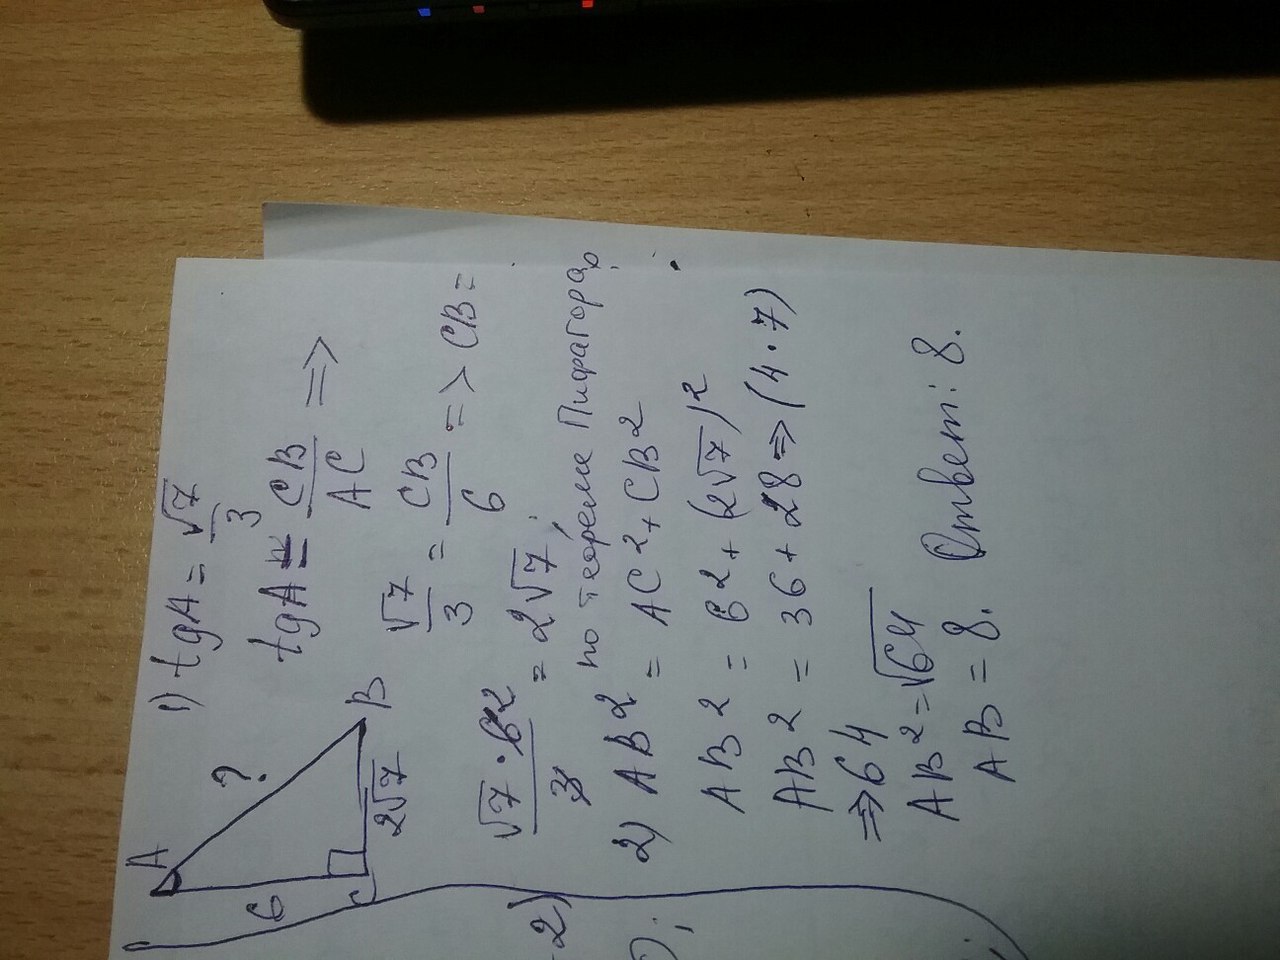 A
?
6
C
2√7
B
1) tgA = √7/3
tgA = CB/AC =>
√7/3 = CB/6 => CB =
√7 · 6 2/3 = 2√7;
по теореме Пифагора,
2) AB2 = AC2 + CB2
AB2 = 62 + (2√7)2
AB2 = 36 + 28 => (4·7)
=> 64
AB2 = √64
AB = 8. Ответ: 8.
-2)
);
;